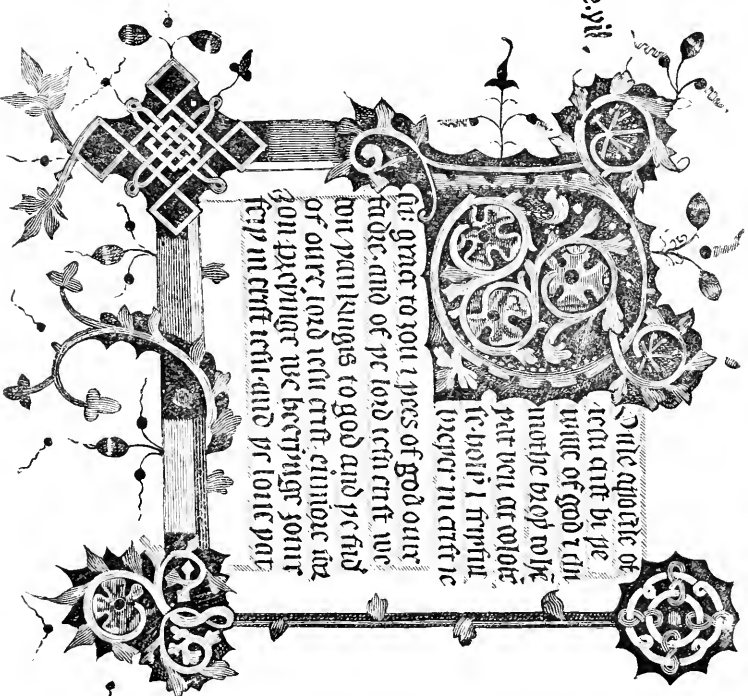 Oule apostle of
iesu crist bi þe
wille of god & thi
moþe broþ to hē
þat ben at colose
holi & feiþful
breþer in crist ie
su grace to ȝou & pees of god oure
fadir. and of þe lord iesu crist we
don þankyngis to god and þe fad
of oure lord iesu crist. euermore for
ȝou preiynge we heeringe ȝour
feiþ in crist iesu. and þe loue þat